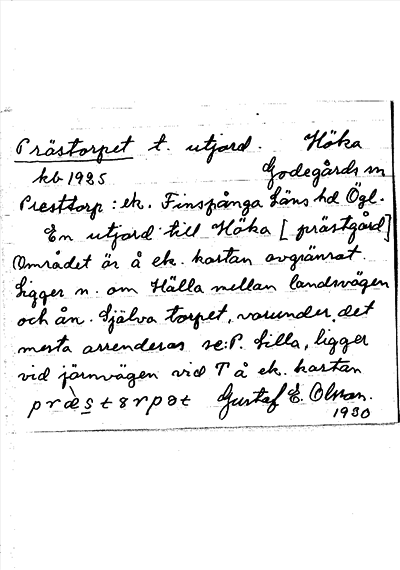 Prästorpet t. utjord. Höka
kb 1925 Godegårds sn
Presttorp: ek. Finspånga läns hd Ögl.
En utjord till Höka [prästgård]
Området är å ek. kartan avgränsat.
Ligger n. om Hälla mellan landsvägen
och ån. Själva torpet, varunder det
mesta arrenderas se: P. Lilla, ligger
vid järnvägen vid T å ek. kartan
Gustaf E. Olsson.
1930